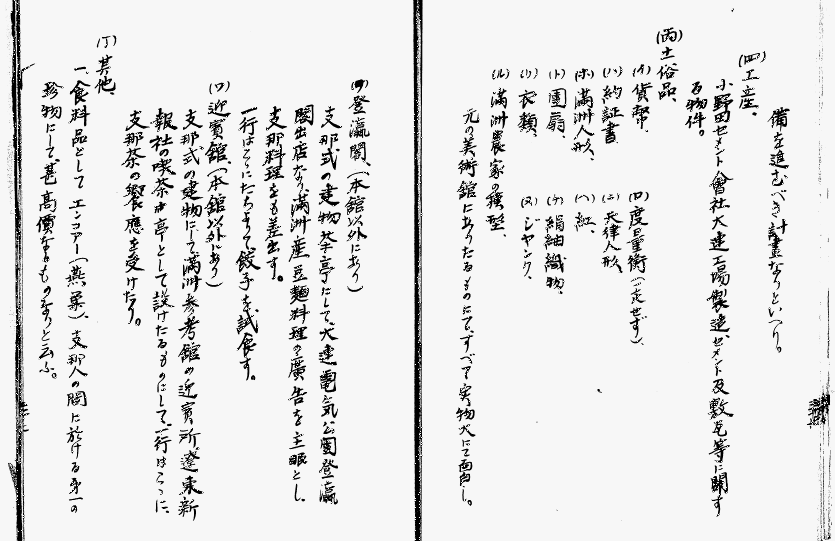 備を進むべき計畫なりといへり。
(四)工産、
小野田セメント會社大連工場製造セメント及敷瓦等に関す
る物件。
(丙)土俗品、
(イ)貨幣、 (ロ)度量衡(一定せず)、
(ハ)納証書 (ニ)天津人形、
(ホ)満洲人形、 (ヘ)紅、
(ト)團扇、 (チ)絹紬織物、
(リ)衣類、 (ヌ)ジヤンク、
(ル)満洲農家の模型、
元の美術館にありたるものにて、すべて実物大にて面白し。
登瀛閣、(本館以外にあり)
支那式の建物茶亭にして、大連電気公園登瀛
閣出店なり、満洲産豆麺料理の廣告を主眼とし、
支那料理をも差出す。
一行はこゝにたちよりて餃子を試食す。
(ワ)迎賓館、(本館以外にあり)
支那式の建物にして満洲参考館の迎賓所、遼東新
報社の喫茶亭として設けたるものにして、一行はこゝに、
支那茶の饗應を受けたり。
(丁)其他、
一、食料品として エンコアー(燕窠)、支那人の間に於ける第一の
珍物にして、甚高價なるものなりと云ふ。